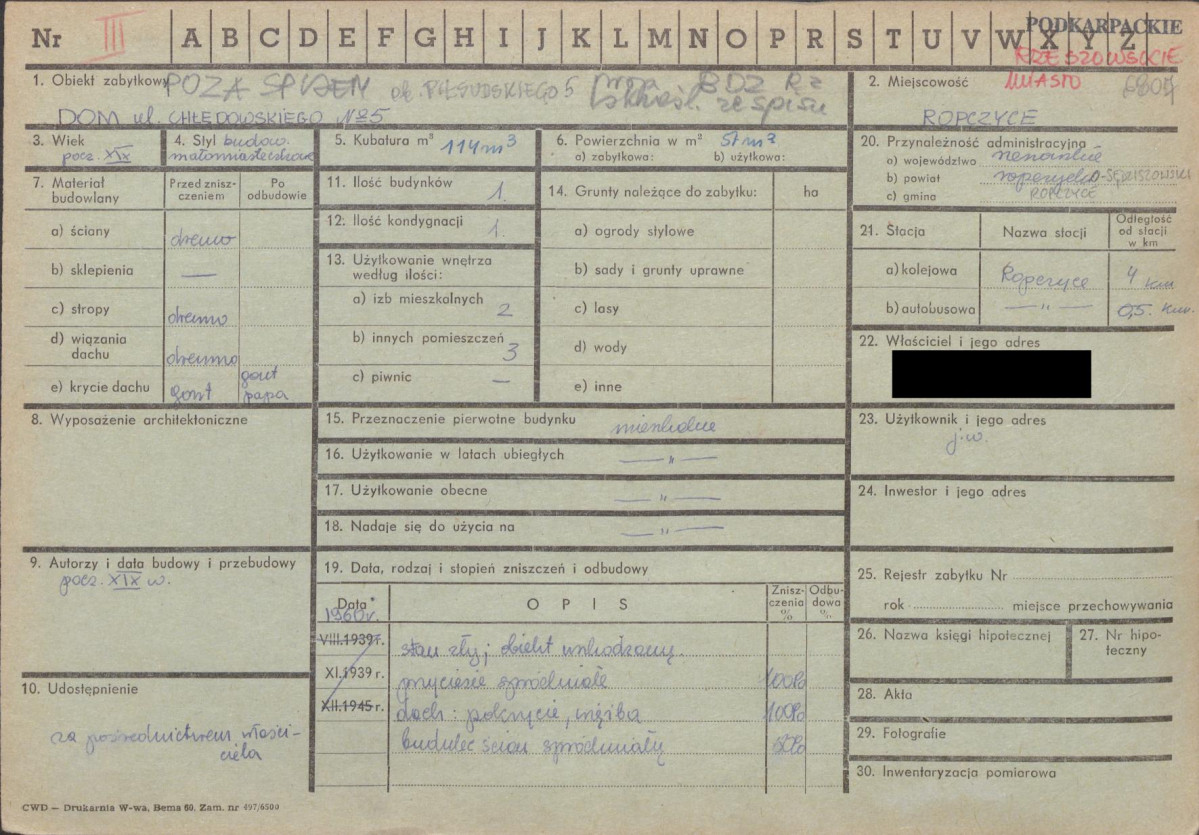 Nr III A B C D E F G H I J K L M N O P R S T U V W X Y Z
PODKARPACKIE
RZESZOWSKIE
MIASTO
1. Obiekt zabytkowy POZA SPISEM pl. PIŁSUDSKIEGO 5
DOM ul. CHŁĘDOWSKIEGO №5
2. Miejscowość
ROPCZYCE
3. Wiek
pocz. XIX
4. Styl budow.
małomiasteczkowe
5. Kubatura m³ 114 m³
6. Powierzchnia w m² 57 m²
a) zabytkowa: b) użytkowa:
7. Materiał budowlany
Przed zniszczeniem
Po odbudowie
a) ściany drewno
b) sklepienia —
c) stropy drewno
d) wiązania dachu drewno
e) krycie dachu gont gont papa
8. Wyposażenie architektoniczne
9. Autorzy i data budowy i przebudowy
pocz. XIX w.
10. Udostępnienie
za pośrednictwem właści-
ciela
11. Ilość budynków 1.
12. Ilość kondygnacji 1.
13. Użytkowanie wnętrza
według ilości:
a) izb mieszkalnych 2
b) innych pomieszczeń 3
c) piwnic —
14. Grunty należące do zabytku: ha
a) ogrody stylowe
b) sady i grunty uprawne
c) lasy
d) wody
e) inne
15. Przeznaczenie pierwotne budynku mieszkalne
16. Użytkowanie w latach ubiegłych — " —
17. Użytkowanie obecne — " —
18. Nadaje się do użycia na — " —
19. Data, rodzaj i stopień zniszczeń i odbudowy
Data* OPIS Zniszczenia % Odbudowa %
1960 r.
VIII.1939 r. stan zły; obiekt uszkodzony.
XI.1939 r. przyciesie spróchniałe 100%
XII.1945 r. dach: pokrycie, więźba 100%
budulec ścian spróchniały 50%
20. Przynależność administracyjna
a) województwo rzeszowskie
b) powiat ropczycko-SĘDZISZOWSKI
c) gmina ROPCZYCE
21. Stacja Nazwa stacji Odległość od stacji w km
a) kolejowa Ropczyce 4 km
b) autobusowa — " — 0,5. km.
22. Właściciel i jego adres
23. Użytkownik i jego adres
j.w.
24. Inwestor i jego adres
25. Rejestr zabytku Nr
rok miejsce przechowywania
26. Nazwa księgi hipotecznej
27. Nr hipo-
teczny
28. Akta
29. Fotografie
30. Inwentaryzacja pomiarowa
CWD — Drukarnia W-wa, Bema 60, Zam. nr 497/6500